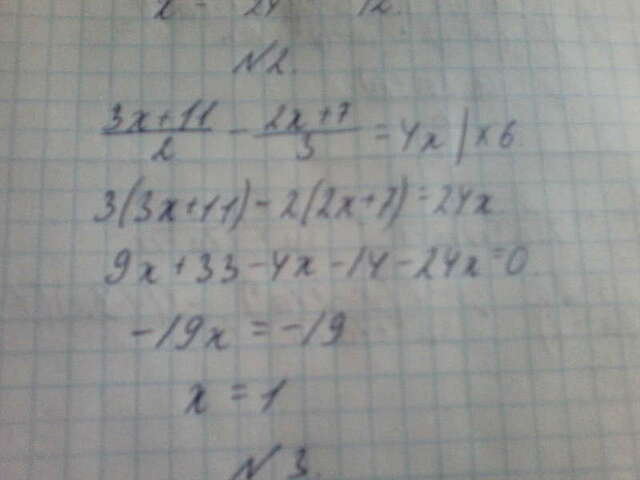 x = 24 12.
№2.
3x+11/2 - 2x+7/3 = 4x | ×6
3(3x+11) - 2(2x+7) = 24x
9x+33-4x-14-24x=0
-19x = -19
x = 1
№3.